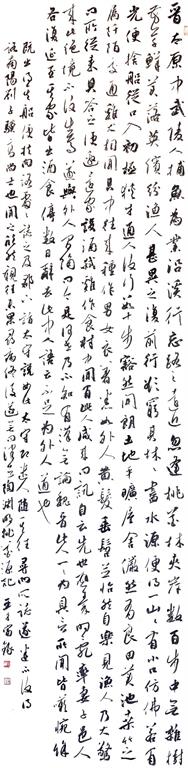 晉太原中武陵人捕魚為業沿溪行忘路之遠近忽逢桃花林夾岸數百步中無雜樹
芳草鮮美落英繽紛漁人甚異之復前行欲窮其林林盡水源便得一山山有小口仿佛若有
光便捨船從口入初極狹才通人復行數十步豁然開朗土地平曠屋舍儼然有良田美池桑竹之
屬阡陌交通雞犬相聞其中往來種作男女衣著悉如外人黃髮垂髫並怡然自樂見漁人乃大驚
問所從來具答之便要還家設酒殺雞作食村中聞有此人咸來問訊自云先世避秦時亂率妻子邑人
來此絕境不復出焉遂與外人間隔問今是何世乃不知有漢無論魏晉此人一一為具言所聞皆嘆惋餘
人各復延至其家皆出酒食停數日辭去此中人語云不足為外人道也
既出得其船便扶向路處處誌之及郡下詣太守說如此太守即遣人隨其往尋向所誌遂迷不復得
路南陽劉子驥高尚士也聞之欣然規往未果尋病終後遂無問津者陶淵明桃花源記